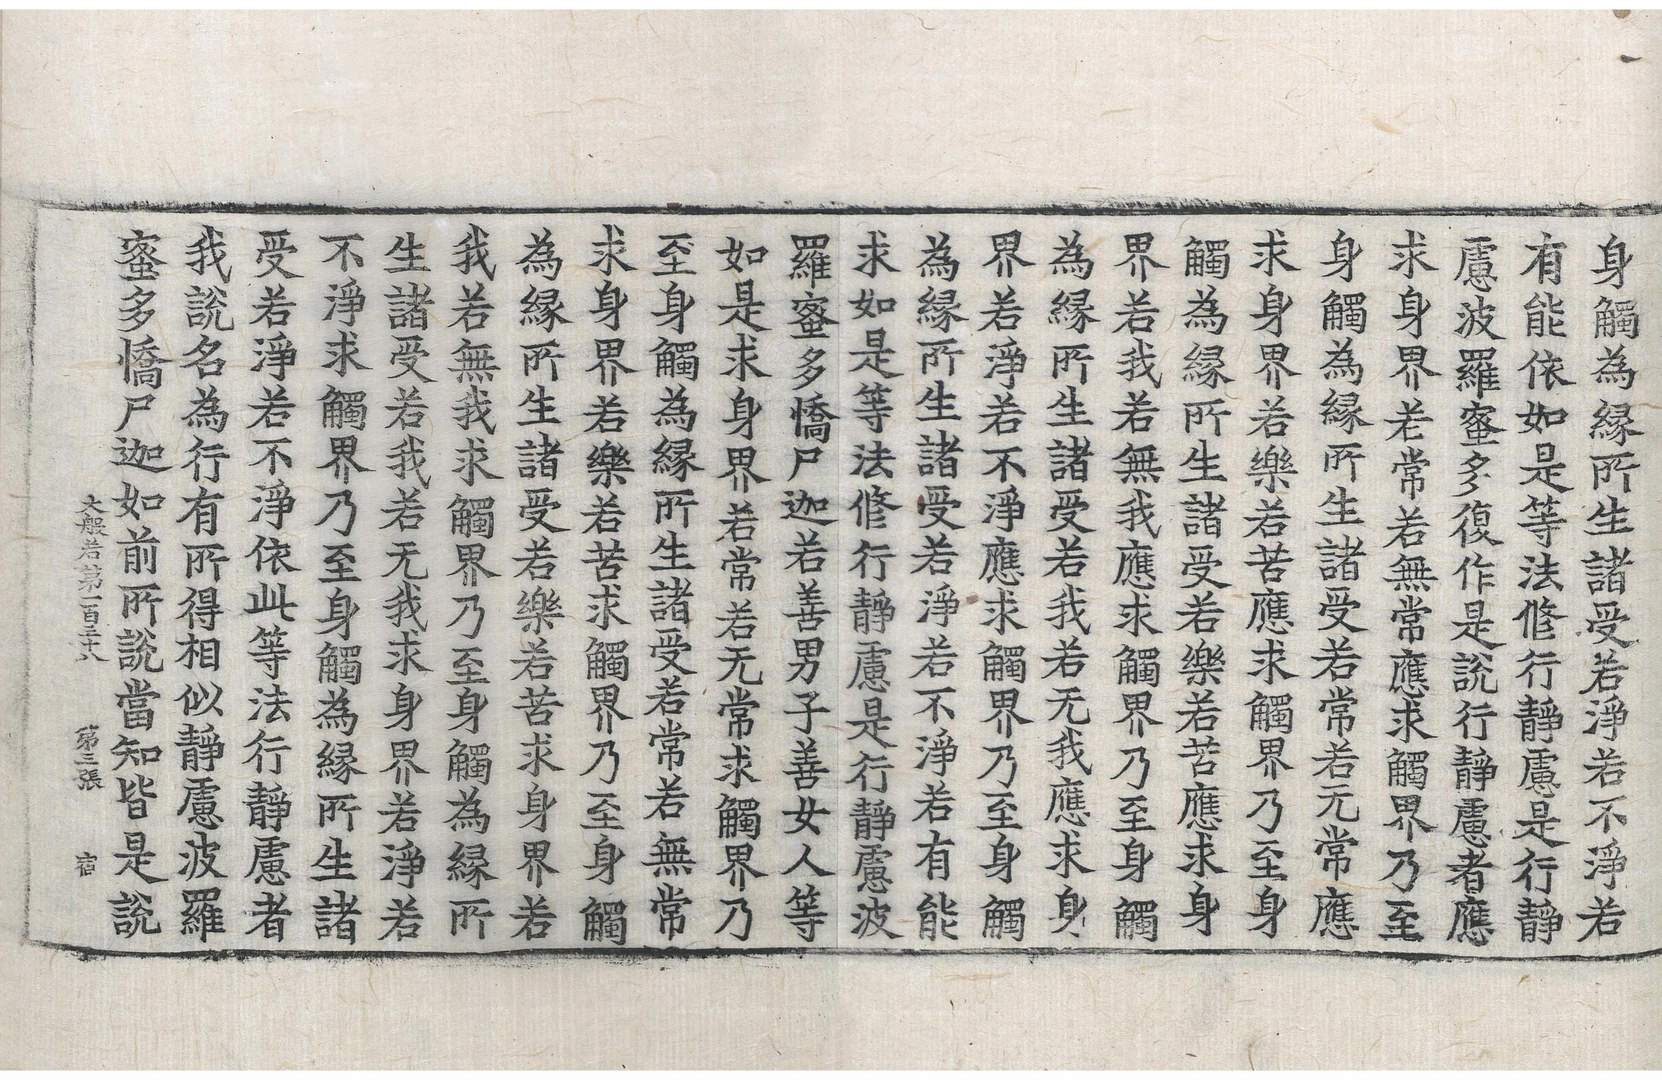 身觸為縁所生諸受若淨若不淨若
有能依如是等法修行靜慮是行靜
慮波羅蜜多復作是說行靜慮者應
求身界若常若無常應求觸界乃至
身觸為縁所生諸受若常若无常應
求身界若樂若苦應求觸界乃至身
觸為縁所生諸受若樂若苦應求身
界若我若無我應求觸界乃至身觸
為縁所生諸受若我若无我應求身
界若淨若不淨應求觸界乃至身觸
為縁所生諸受若淨若不淨若有能
求如是等法修行靜慮是行靜慮波
羅蜜多憍尸迦若善男子善女人等
如是求身界若常若无常求觸界乃
至身觸為縁所生諸受若常若無常
求身界若樂若苦求觸界乃至身觸
為縁所生諸受若樂若苦求身界若
我若無我求觸界乃至身觸為縁所
生諸受若我若无我求身界若淨若
不淨求觸界乃至身觸為縁所生諸
受若淨若不淨依此等法行靜慮者
我說名為行有所得相似靜慮波羅
蜜多憍尸迦如前所說當知皆是說
大般若第一百三十八 第三張 宿